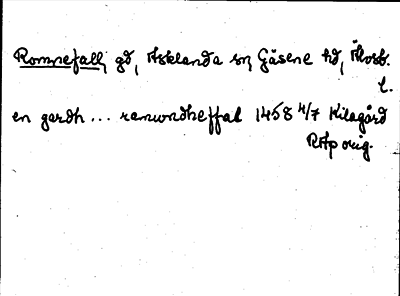 Romnefall, gd, Asklanda sn, Gäsene hd, Älvsb.
l.
en gardh ... ramundheffal 1458 4/7 Kilagård
RAp orig.